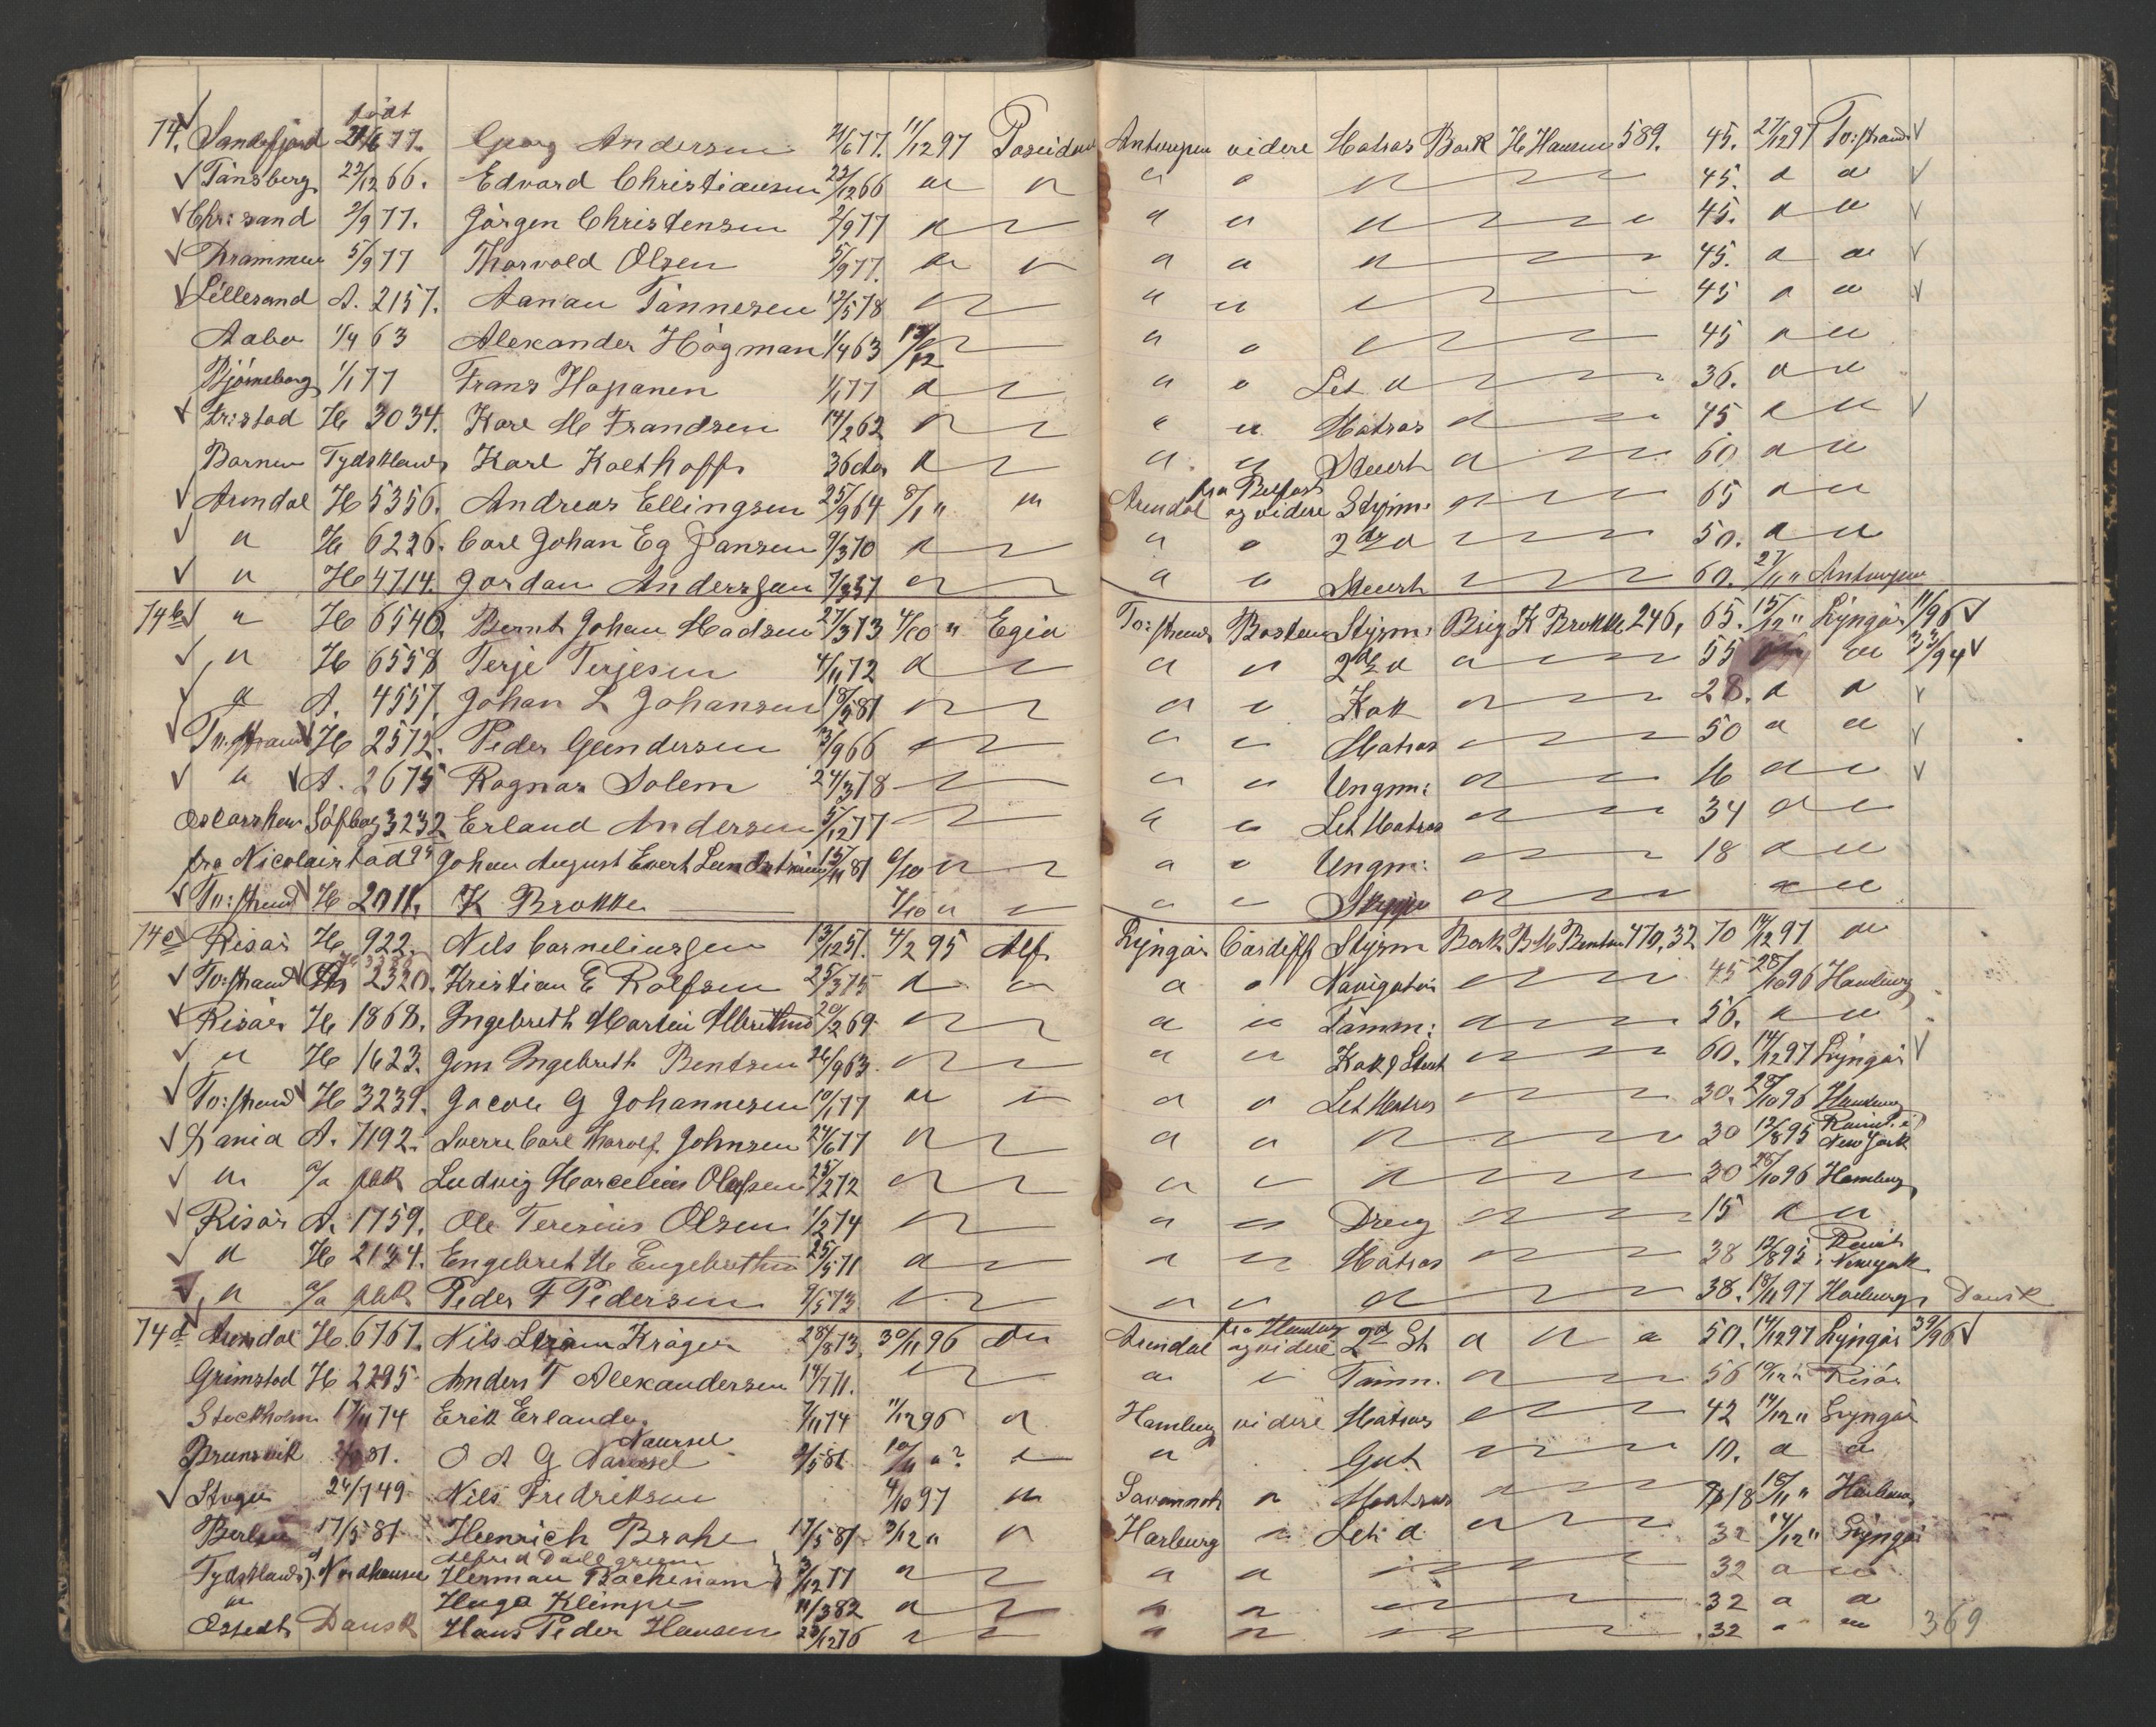 født
74. Sandefjord 21/6 77. Georg Andersen 21/6 77. 11/12 97 Poseidon Antwerpen videre Matros Bark H Hansen 589. 45. 27/12 97 To:strand
Tönsberg 22/12 66. Edvard Christiansen 22/12 66 " " " " " 45. " "
Chr:sand 2/9 77. Jörgen Christensen 2/9 77 " " " " 45. " "
Drammen 5/9 77 Thorvold Olsen 5/9 77. " " " " " 45. " "
Lillesand A. 2157. Aanau Tönnesen 12/5 78 " " " " 45 " "
Aabo 1/4 63 Alexander Högman 1/4 63 13/12 " " " 45 " "
Björneborg 1/1 77 Frans Hapanen 1/1 77 " " " Let " 36. " "
Fr:stad H 3034. Karl M Frandsen 14/2 62 " " " Matros " 45 " "
Barmen Tydskland Karl Kolthoff 36 År " " " Stuert " 60 " "
Arendal H 5356. Andreas Ellingsen 25/9 64 8/1 " " Arendal fra Belfast og videre Styrm: " 65 " "
" H 6226. Carl Johan Eg Jansen 9/3 70 " " " 2den " 50. " "
" H 4714. Jordan Anderssen 7/3 57 " " " Stuert 60. 27/11 " Antwerpen
74b " H 6540. Bernt Johan Madsen 27/3 73 4/10 " Egia To:strand Boston Styrm: Brig K Brokke 246, 65. 15/12 " Lyngör 11/96
" H 6558 Terje Terjesen 4/11 72 " " " 2den " " 55 " " 23/94
" A. 4557. Johan L Johansen 18/5 81 " " " Kok " 28. " "
To:strand H 2572. Peder Gundersen 13/9 66 " " " Matros " 50 " "
" A. 2675 Ragnar Solem 24/3 78 " " " Ungm: " 16 " "
Oscarshavn Söfbog 3232 Erland Andersen 5/12 77 " " " Let Matros " 34 " "
fra Nicolaistad 95 Johan August Evert Lundström 15/11 81 6/10 " " " Ungm: " 18 " "
To:strand H 2011. K Brokke 7/10 " " " " Skipper " " "
74c Risör H. 922. Nils Corneliussen 13/12 51. 4/2 95 Alf Lyngör Cardiff Styrm Bark B M Bentsen 470,32 70 14/12 97 "
To:strand 2320. Kristian E Rolfsen 25/3 75 " " " " Navigatör " 45 28/10 96 Hamburg
Risör H 1868. Ingebreth Martin Albrethsen 20/2 69. " " " Tömm: " 56. " "
" H 1623. Jens Ingebreth Bentsen 26/9 63. " " " Kok & Stuert " 60. 14/12 97 Lyngör
To:strand H 3239. Jacob G Johannesen 10/1 77 " " " " Let Matros " 30. 28/10 96 Hamburg
Krania A. 7192. Sverre Carl Thorvolf Johnsen 24/6 77 " " " " 30 12/8 95 Rømt i New York
" o/a pak Ludvig Marcelius Olafsen 25/2 72 " " " " 30 28/10 96 Hamburg
Risör A. 1759. Ole Teresius Olsen 1/2 74 " " " Dreng " 15 " "
" H 2134. Engebret M Engebrethsen 25/5 71 " " " Matros " 38 12/8 95 Rømt i New york
" o/a pak Peder F Pedersen 9/5 73 " " " " 38. 18/11 97 Harburg Dansk
74d Arendal H. 6767. Nils Kröger 28/8 73, 30/11 96 " Arendal fra Hamburg og videre 2den St " " " 50. 14/12 97 Lyngör 39/96
Grimstad H 2295 Anders T Alexandersen 14/7 71. " " " Tömm. " 56 10/12 " Risör
Stockholm 17/11 74 Erik Erlander 7/11 74 11/12 96 " Hamburg videre Matros " 42 14/12 " Lyngör
Naursel
Brunsvik 2/5 81. O A G Naursel 2/5 81 10/11 " ? " " Gut " 10. " "
Stugu 24/7 49 Nils Fredriksen 4/10 97 " Savannah " Matros " 18 18/11 " Harburg
Berlin 17/5 81. Heinrich Brahe 17/5 81 3/12 " " Harburg " Let " " 32 14/12 " Lyngör
Tydskland Nordhausen Herman Bachemann 3/12 77 " " " " 32 " "
" Hugo Klimpe 11/3 82 " " " " 32 " "
Östedt Dansk Hans Peder Hansen 23/12 76 " " " " 32 " "
369